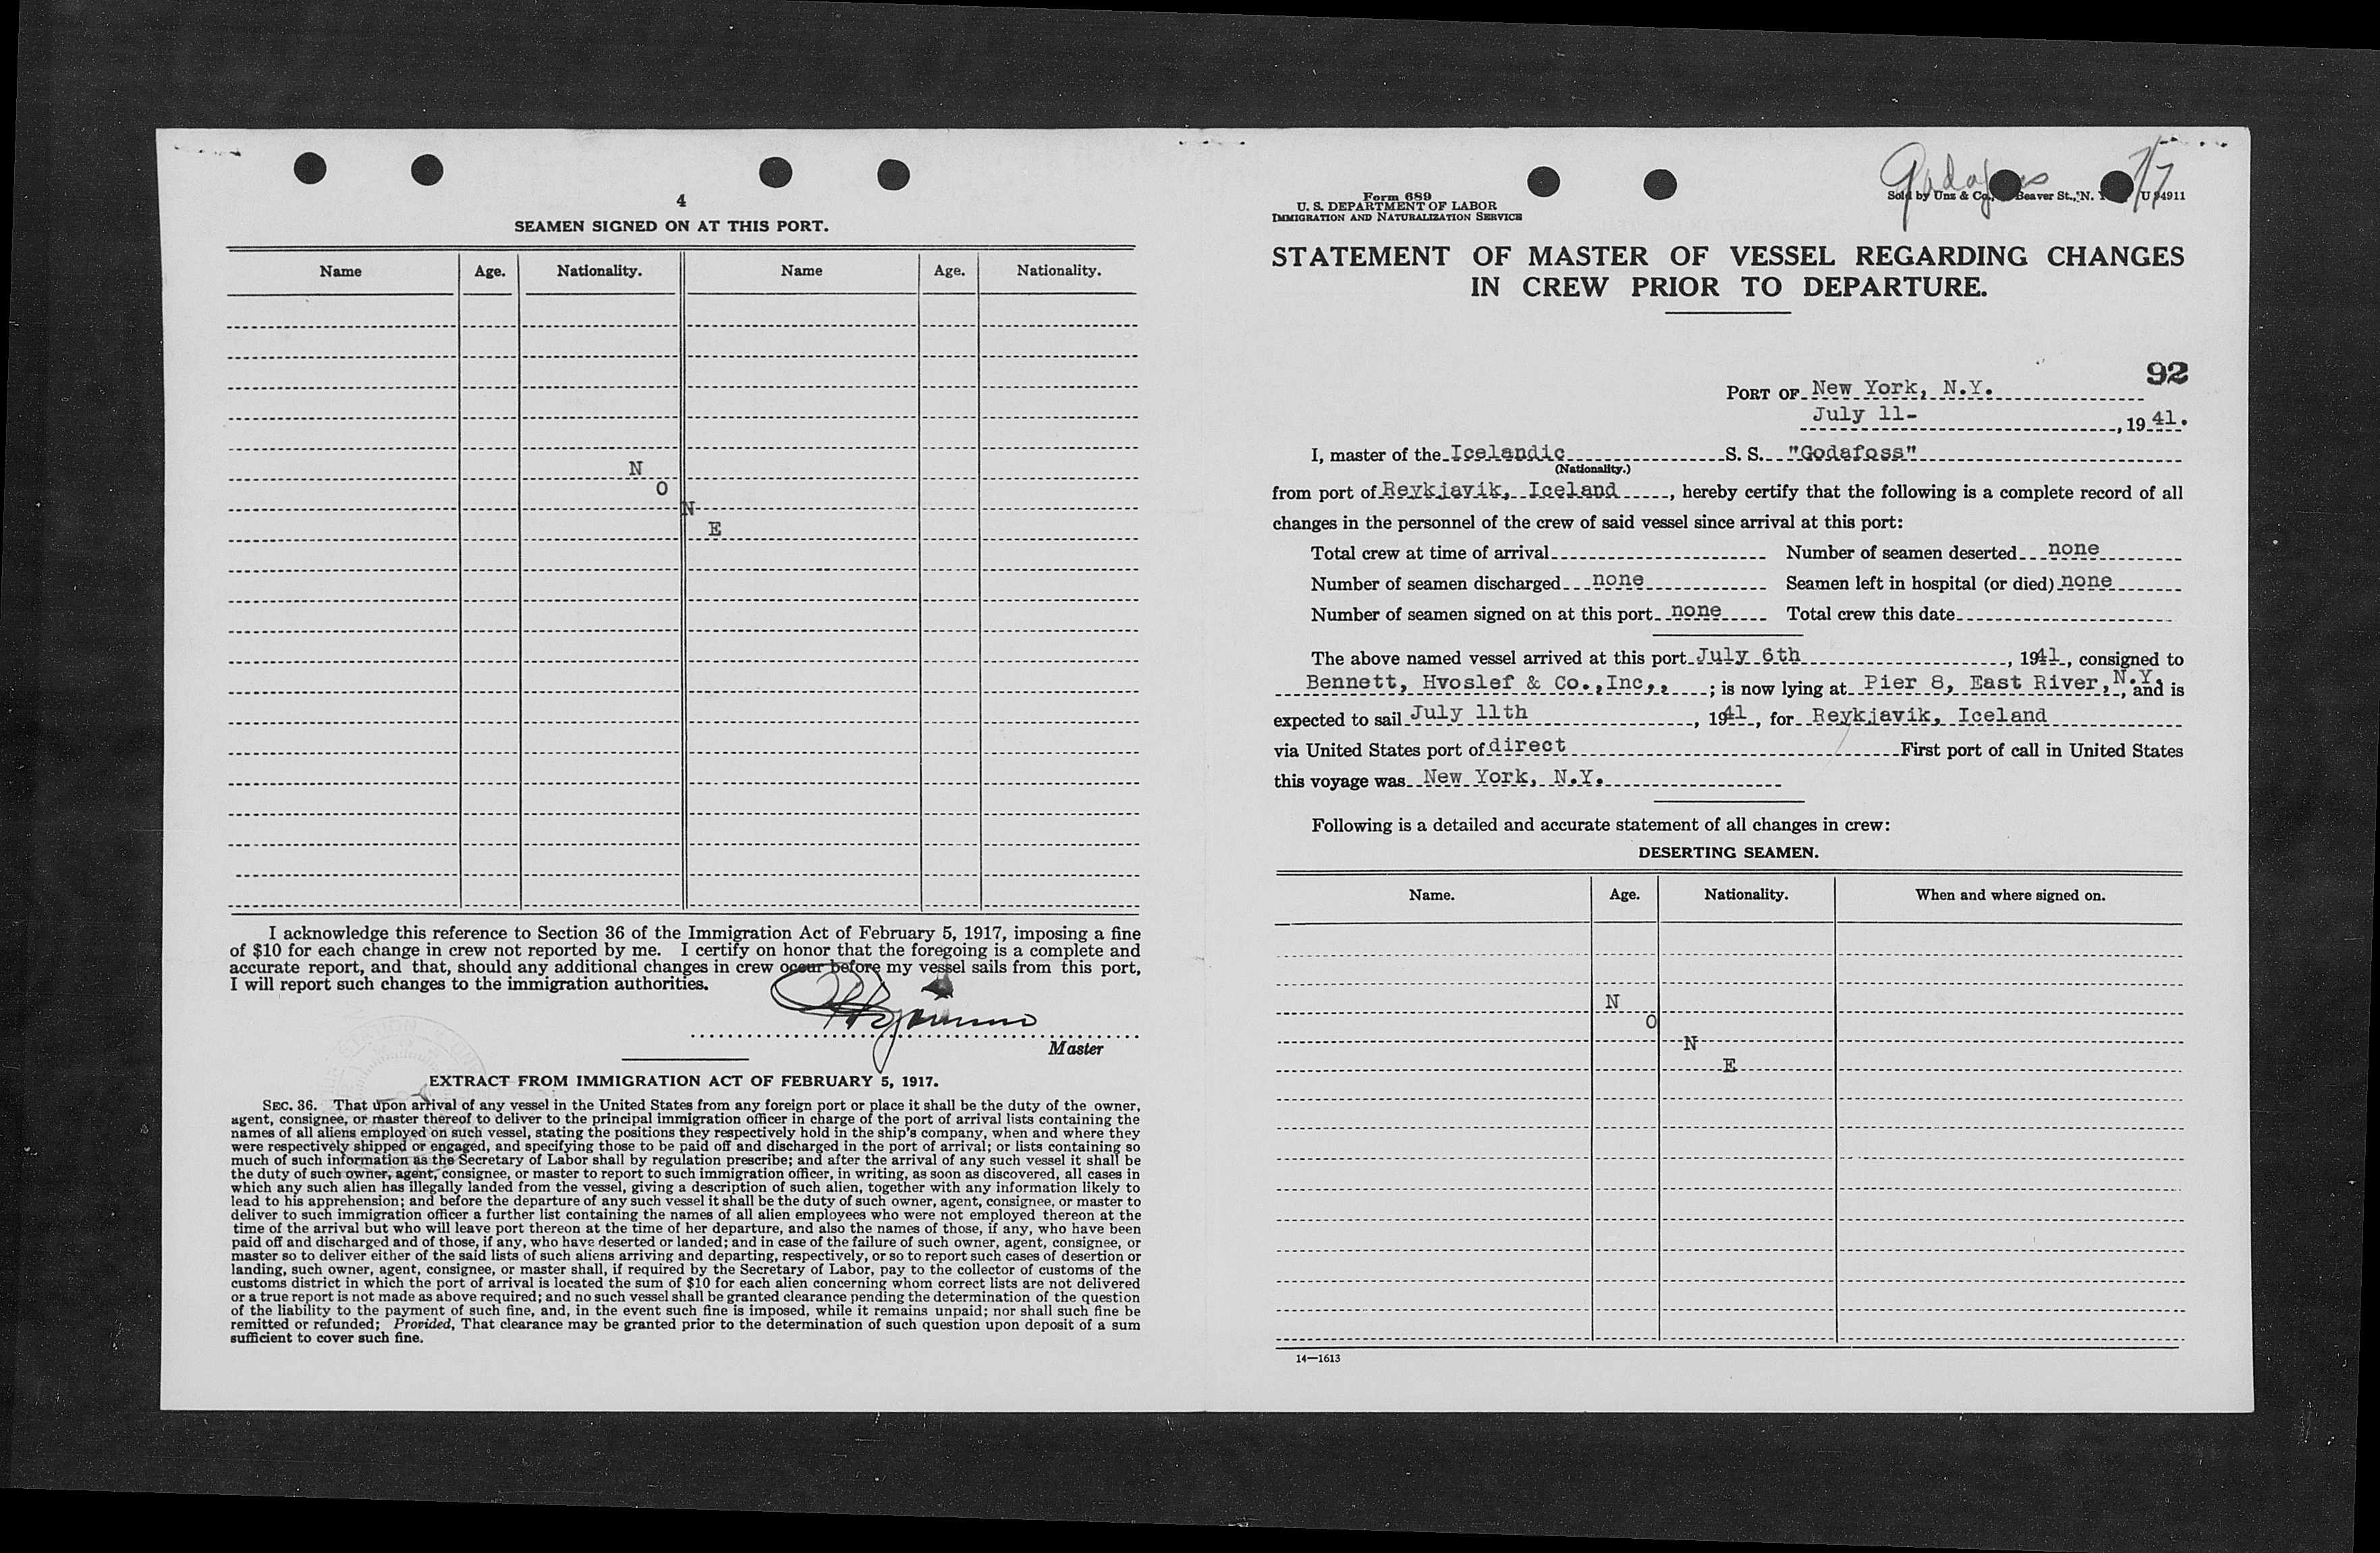 4
SEAMEN SIGNED ON AT THIS PORT.
Name Age. Nationality. Name Age. Nationality.
N
O
N
E
I acknowledge this reference to Section 36 of the Immigration Act of February 5, 1917, imposing a fine
of $10 for each change in crew not reported by me. I certify on honor that the foregoing is a complete and
accurate report, and that, should any additional changes in crew occur before my vessel sails from this port,
I will report such changes to the immigration authorities.
Master
EXTRACT FROM IMMIGRATION ACT OF FEBRUARY 5, 1917.
SEC. 36. That upon arrival of any vessel in the United States from any foreign port or place it shall be the duty of the owner,
agent, consignee, or master thereof to deliver to the principal immigration officer in charge of the port of arrival lists containing the
names of all aliens employed on such vessel, stating the positions they respectively hold in the ship's company, when and where they
were respectively shipped or engaged, and specifying those to be paid off and discharged in the port of arrival; or lists containing so
much of such information as the Secretary of Labor shall by regulation prescribe; and after the arrival of any such vessel it shall be
the duty of such owner, agent, consignee, or master to report to such immigration officer, in writing, as soon as discovered, all cases in
which any such alien has illegally landed from the vessel, giving a description of such alien, together with any information likely to
lead to his apprehension; and before the departure of any such vessel it shall be the duty of such owner, agent, consignee, or master to
deliver to such immigration officer a further list containing the names of all alien employees who were not employed thereon at the
time of the arrival but who will leave port thereon at the time of her departure, and also the names of those, if any, who have been
paid off and discharged and of those, if any, who have deserted or landed; and in case of the failure of such owner, agent, consignee, or
master so to deliver either of the said lists of such aliens arriving and departing, respectively, or so to report such cases of desertion or
landing, such owner, agent, consignee, or master shall, if required by the Secretary of Labor, pay to the collector of customs of the
customs district in which the port of arrival is located the sum of $10 for each alien concerning whom correct lists are not delivered
or a true report is not made as above required; and no such vessel shall be granted clearance pending the determination of the question
of the liability to the payment of such fine, and, in the event such fine is imposed, while it remains unpaid; nor shall such fine be
remitted or refunded; Provided, That clearance may be granted prior to the determination of such question upon deposit of a sum
sufficient to cover such fine.
Godafoss 7/7
Form 689
U. S. DEPARTMENT OF LABOR
IMMIGRATION AND NATURALIZATION SERVICE
Sold by Unz & Co., Beaver St., N. Y. U 94911
STATEMENT OF MASTER OF VESSEL REGARDING CHANGES
IN CREW PRIOR TO DEPARTURE.
92
PORT OF New York, N.Y.
July 11- , 1941.
I, master of the Icelandic S. S. "Godafoss"
(Nationality.)
from port of Reykjavik, Iceland , hereby certify that the following is a complete record of all
changes in the personnel of the crew of said vessel since arrival at this port:
Total crew at time of arrival Number of seamen deserted none
Number of seamen discharged none Seamen left in hospital (or died) none
Number of seamen signed on at this port none Total crew this date
The above named vessel arrived at this port July 6th , 1941, consigned to
Bennett, Hvoslef & Co.,Inc., ; is now lying at Pier 8, East River, N.Y., and is
expected to sail July 11th , 1941, for Reykjavik, Iceland
via United States port of direct First port of call in United States
this voyage was New York, N.Y.
Following is a detailed and accurate statement of all changes in crew:
DESERTING SEAMEN.
Name. Age. Nationality. When and where signed on.
N
O
N
E
14—1613